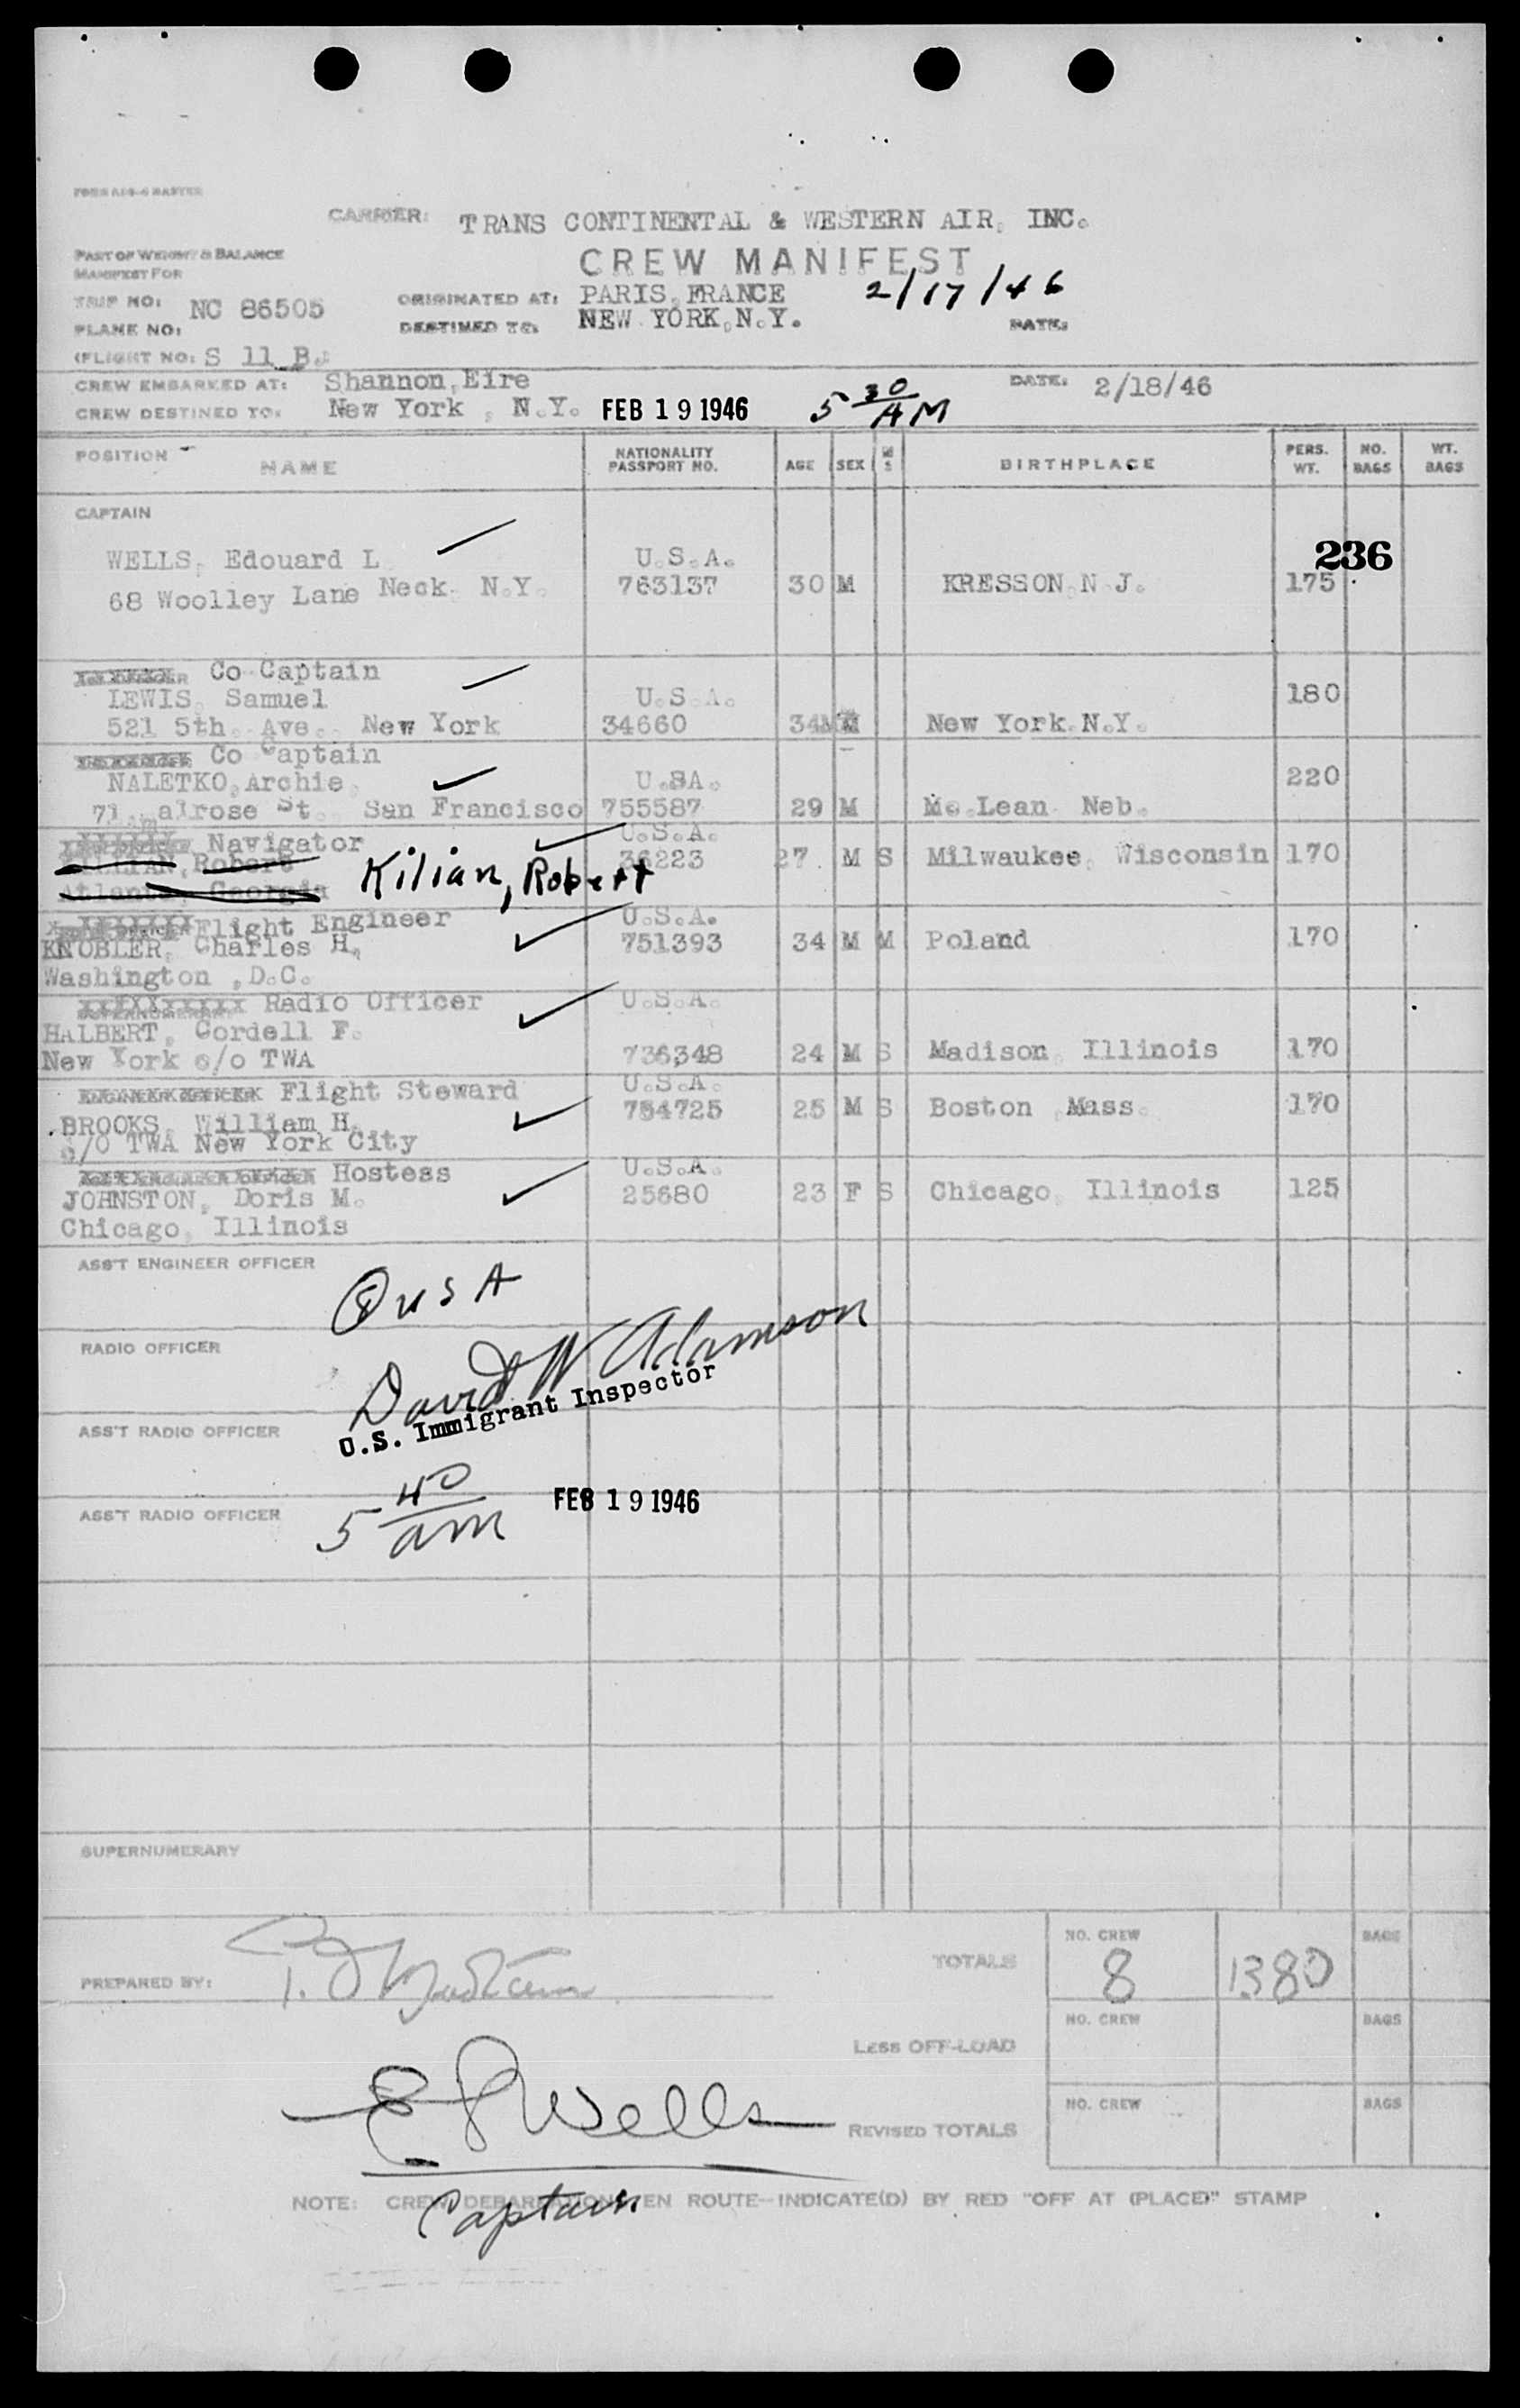 FORM A28-4 MASTER
CARRIER: TRANS CONTINENTAL & WESTERN AIR, INC.
PART OF WEIGHT & BALANCE
MANIFEST FOR
CREW MANIFEST
TRIP NO: NC 86505 ORIGINATED AT: PARIS, FRANCE 2/17/46
PLANE NO: DESTINED TO: NEW YORK, N.Y. DATE:
(FLIGHT NO: S 11 B.
CREW EMBARKED AT: Shannon, Eire DATE: 2/18/46
CREW DESTINED TO: New York , N.Y. FEB 19 1946 5 30 AM
POSITION NAME NATIONALITY PASSPORT NO. AGE SEX M S BIRTHPLACE PERS. WT. NO. BAGS WT. BAGS
CAPTAIN
236
WELLS, Edouard L U.S.A.
68 Woolley Lane Neck N.Y. 763137 30 M KRESSON, N J. 175
Co Captain
LEWIS, Samuel U.S.A. 180
521 5th. Ave. New York 34660 34 M New York N.Y.
Co Captain
NALETKO, Archie, U.SA. 220
71 alrose St. San Francisco 755587 29 M Mc Lean Neb.
Navigator U.S.A.
KILIAN, Robert Kilian, Robert 36223 27 M S Milwaukee, Wisconsin 170
Atlanta, Georgia
Flight Engineer U.S.A.
KNOBLER, Charles H, 751393 34 M M Poland 170
Washington , D.C.
Radio Officer U.S.A.
HALBERT, Cordell F.
New York c/o TWA 736348 24 M S Madison, Illinois 170
ENGINEER OFFICER Flight Steward U.S.A.
BROOKS, William H. 754725 25 M S Boston , Mass. 170
c/o TWA New York City
ASS'T ENGINEER OFFICER Hostess U.S.A.
JOHNSTON, Doris M. 25680 23 F S Chicago, Illinois 125
Chicago, Illinois
ASS'T ENGINEER OFFICER
8 USA
RADIO OFFICER
David W Adamson
U.S. Immigrant Inspector
ASS'T RADIO OFFICER
ASS'T RADIO OFFICER 5 40 am FEB 19 1946
SUPERNUMERARY
PREPARED BY: TOTALS NO. CREW 8 1380 BAGS
LESS OFF-LOAD NO. CREW BAGS
E L Wells
REVISED TOTALS NO. CREW BAGS
NOTE: CREW DEBARKATIONS EN ROUTE—INDICATE(D) BY RED "OFF AT (PLACE)" STAMP
Captain